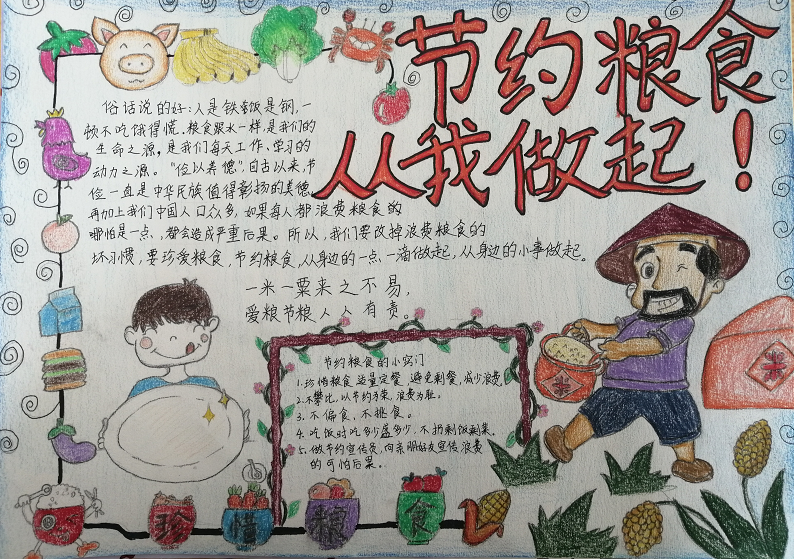 节约粮食
从我做起！
俗话说的好:人是铁食饭是钢,一
顿不吃饿得慌。粮食跟水一样,是我们的
生命之源,是我们每天工作、学习的
动力之源。"俭以养德",自古以来,节
俭一直是中华民族值得彰扬的美德,
再加上我们中国人口众多,如果每人都浪费粮食的
哪怕是一点,都会造成严重后果。所以,我们要改掉浪费粮食的
坏习惯,要珍爱粮食,节约粮食,从身边的一点一滴做起,从身边的小事做起。
一米一粟来之不易,
爱粮节粮人人有责。
节约粮食的小窍门
1.珍惜粮食,适量定餐,避免剩餐,减少浪费。
2.不攀比,以节约为荣,浪费为耻。
3.不偏食,不挑食。
4.吃饭时吃多少盛多少,不扔剩饭剩菜。
5.做节约宣传员,向亲朋好友宣传浪费
的可怕后果。
米
米
珍 惜 粮 食